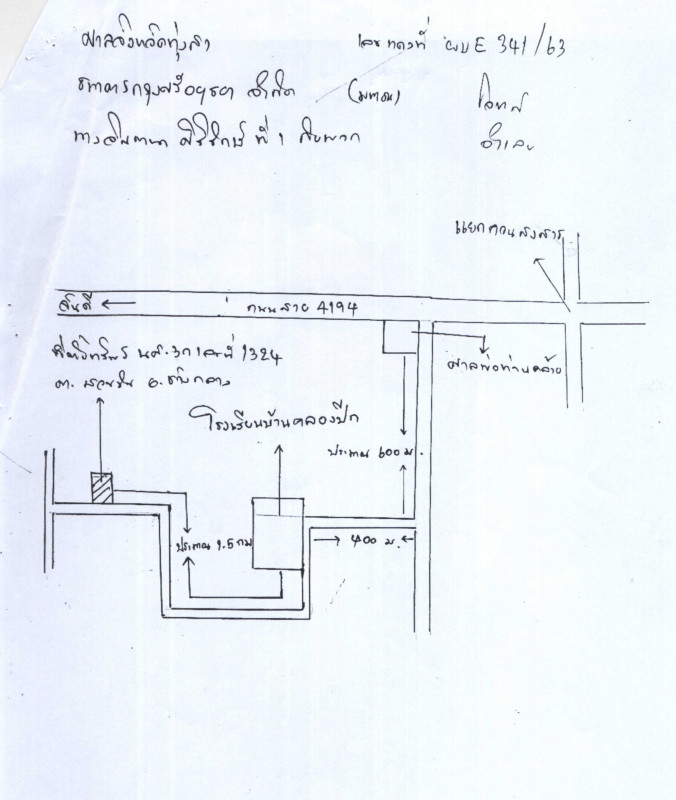 ศาลจังหวัดทุ่งสง เลขแดงที่ ผบE 341/63
ธนาคารกรุงศรีอยุธยา จำกัด (มหาชน) โจทก์
ที่ 1 กับพวก จำเลย
แยกควนสงสาร
จันดี ถนนสาย 4194
ที่ตั้งทรัพย์ นส.3ก เลขที่ 1324
ศาลพ่อท่านคล้าย
ต. อ.ช้างกลาง
โรงเรียนบ้านคลองปีก
ประมาณ 600 ม.
ประมาณ 1.5 กม
400 ม.